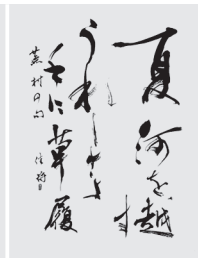 夏河を越す
うれしさよ
手に草履
蕪村の句